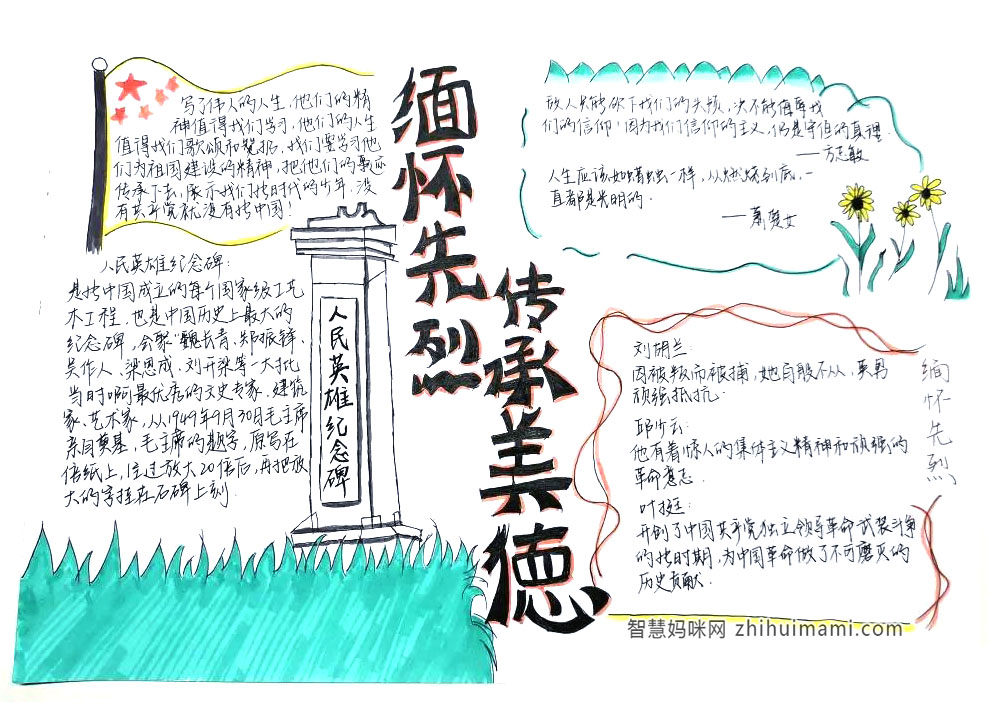 写了伟人的人生,他们的精
神值得我们学习,他们的人生
值得我们歌颂和赞扬,我们要学习他
们为祖国建设的精神,把他们的事迹
传承下去,展示我们新时代的少年,没
有共产党就没有新中国!
人民英雄纪念碑:
是新中国成立的每个国家级工艺
木工程,也是中国历史上最大的
纪念碑,会聚"魏长青、郑振铎、
吴作人、梁思成、刘开渠等一大批
当时啊最优秀的文史专家、建筑
家、艺术家,从1949年9月30日毛主席
亲自奠基,毛主席的题字,原写在
信纸上,经过放大20倍后,再把放
大的字挂在石碑上刻.
人民英雄纪念碑
缅怀先烈
传承美德
敌人只能砍下我们的头颅,决不能侮辱我
们的信仰!因为我们信仰的主义,仍是宇宙的真理.
——方志敏
人生应该如蜡烛一样,从燃烧到底,一
直都是光明的.
——萧楚女
刘胡兰:
因被叛而被捕,她自段不从,英勇
顽强抵抗.
邱少云:
他有着惊人的集体主义精神和顽强的
革命意志.
叶挺:
开创了中国共产党独立领导革命武装斗争
的新时期,为中国革命做了不可磨灭的
历史贡献.
缅怀先烈
智慧妈咪网 zhihuimami.com